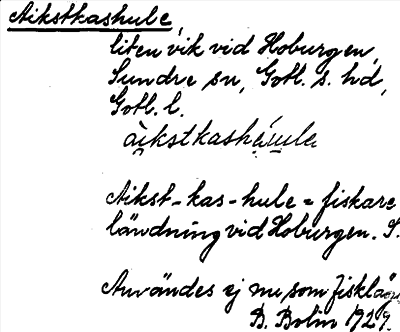 Aikstkashule,
liten vik vid Hoburgen,
Sundre sn, Gotl. s. hd,
Gotl. l.
àikstkasháula
Aikst-kas-hule = fiskare
ländning vid Hoburgen. S.
Användes ej nu som fiskläge.
B. Bolin 1929.